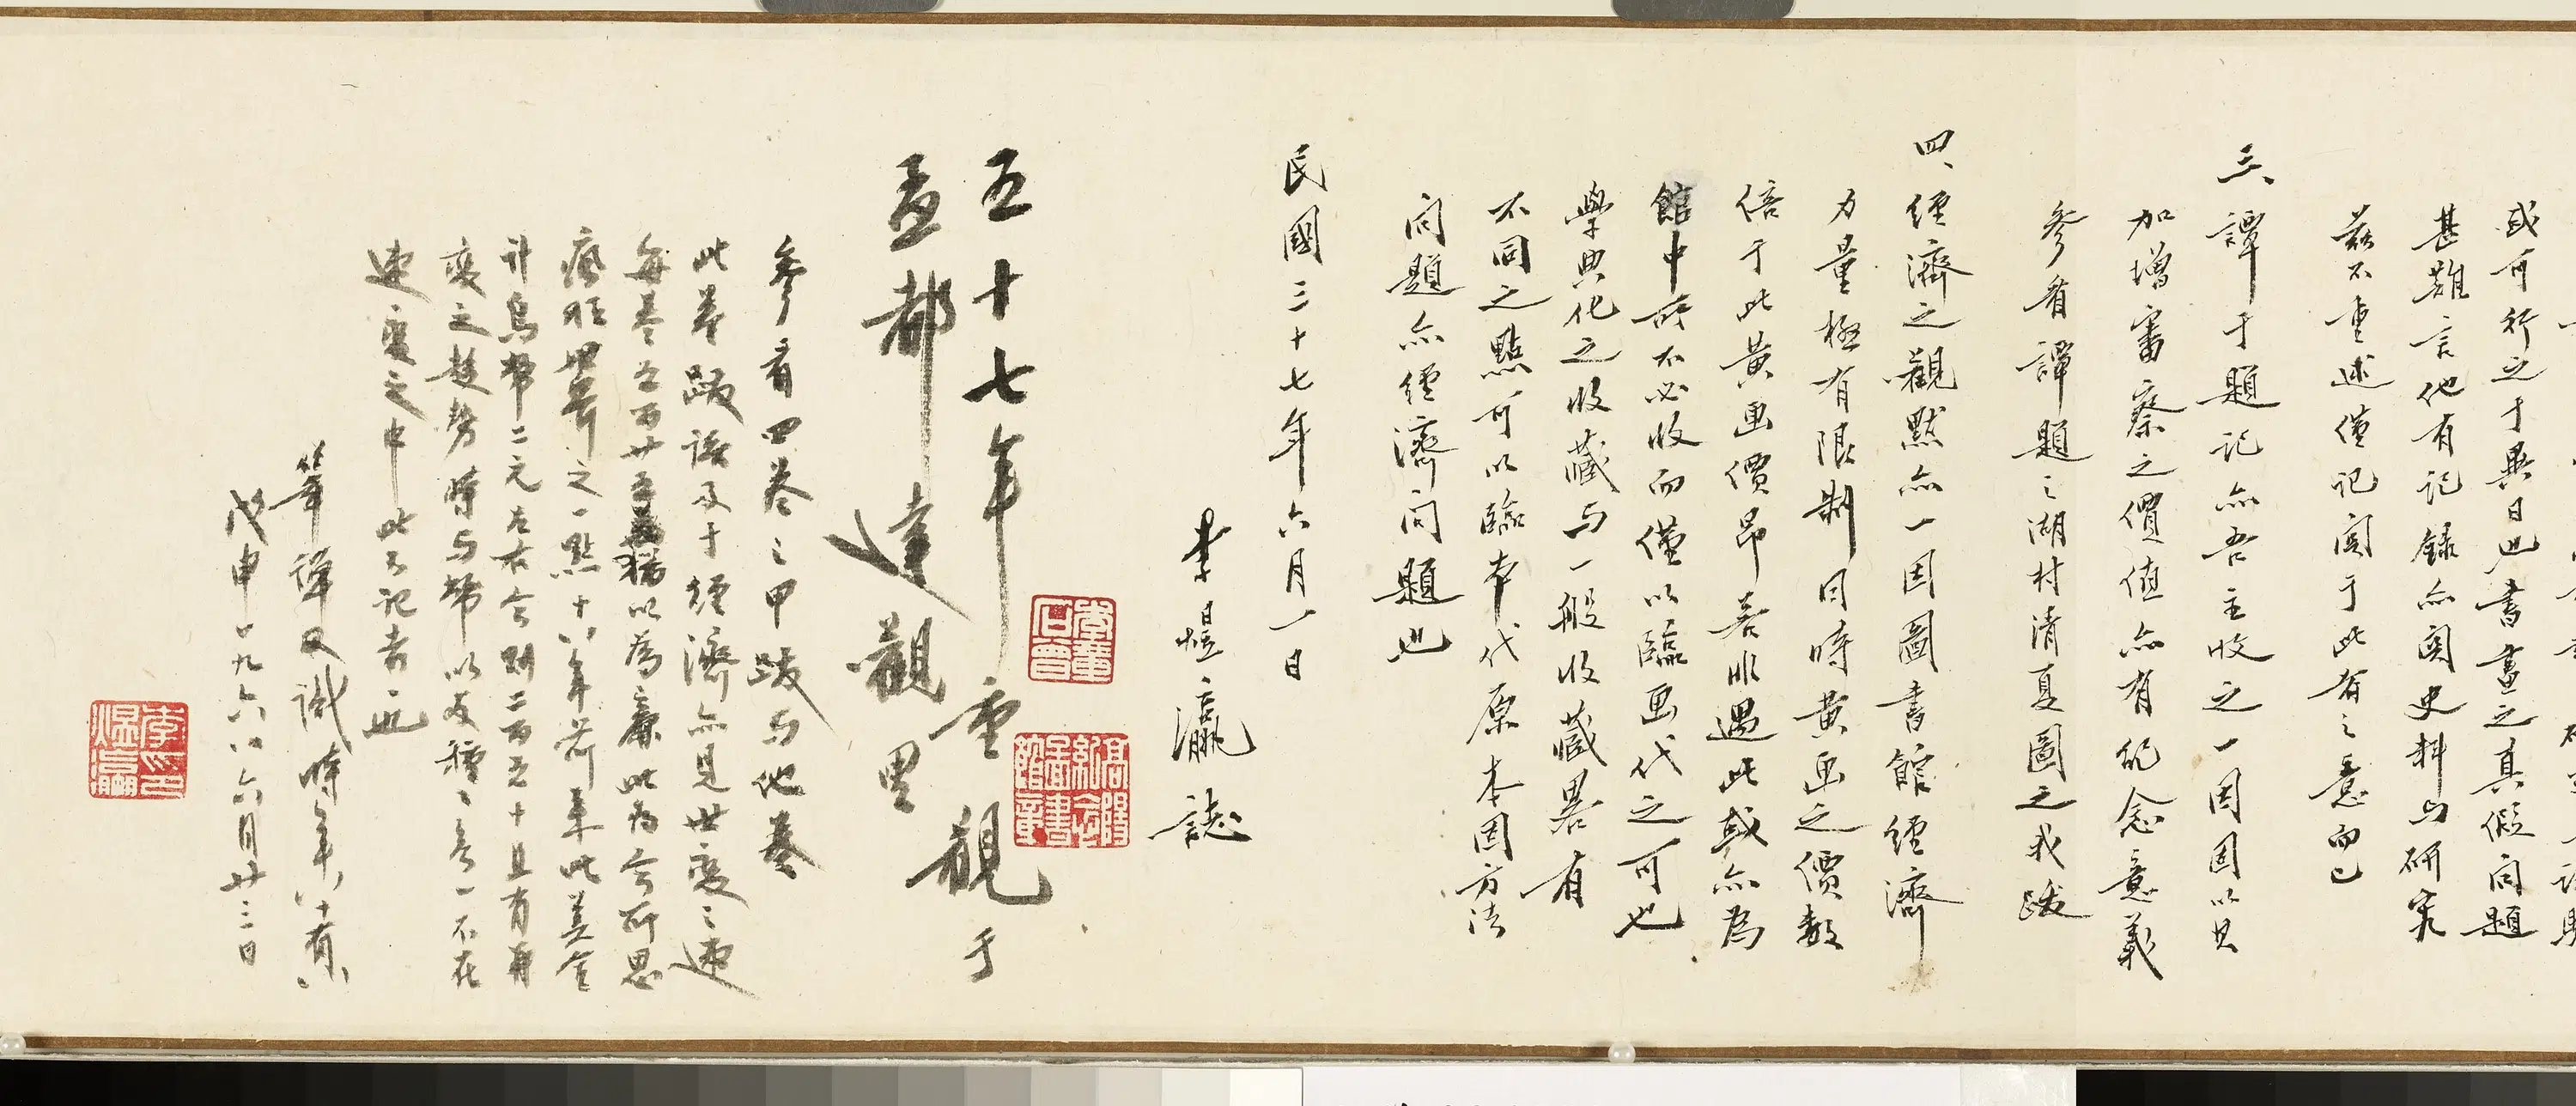 或可行之于異日也書畫之真假問題
甚難言他有記錄亦関史料与研究
茲不重述僅記関于此者之意而已
三、譚于題記亦吾主收之一因因以其
加增審察之價值亦有紀念意義
參看譚題之湖村清夏圖之我跋
四、經濟之觀點亦一因圖書館經濟
力量極有限制同時黄画之價數
倍于此黄画價昂若非遇此或亦為
館中所不必收而僅以臨画代之可也
學典化之收藏与一般收藏畧有
不同之點可以臨本代原本因方法
問題亦經濟問題也
民國三十七年六月一日
李煜瀛誌
五十七年重觀于
孟都達觀里
參看四卷之甲跋与他卷
此卷跋語及于經濟亦見世變之速
每卷五百廿以為廉此為今所思
之一點十八年前来此美金
計烏幣二元左右今則二百五十且有再
變之趨勢時与幣以及種種一不在
速變之中此又記者一也
筆譚又識時年八十有八
戊申一九六八六月廿三日